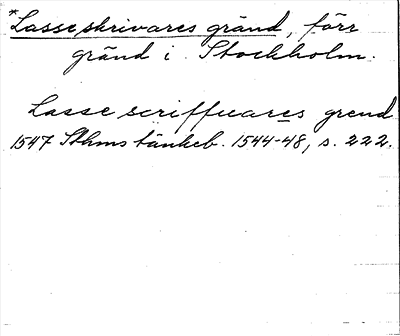 *Lasse skrivares gränd, förr
gränd i Stockholm.
Lasse scriffuares grend
1547 Sthms tänkeb. 1544-48, s. 222.